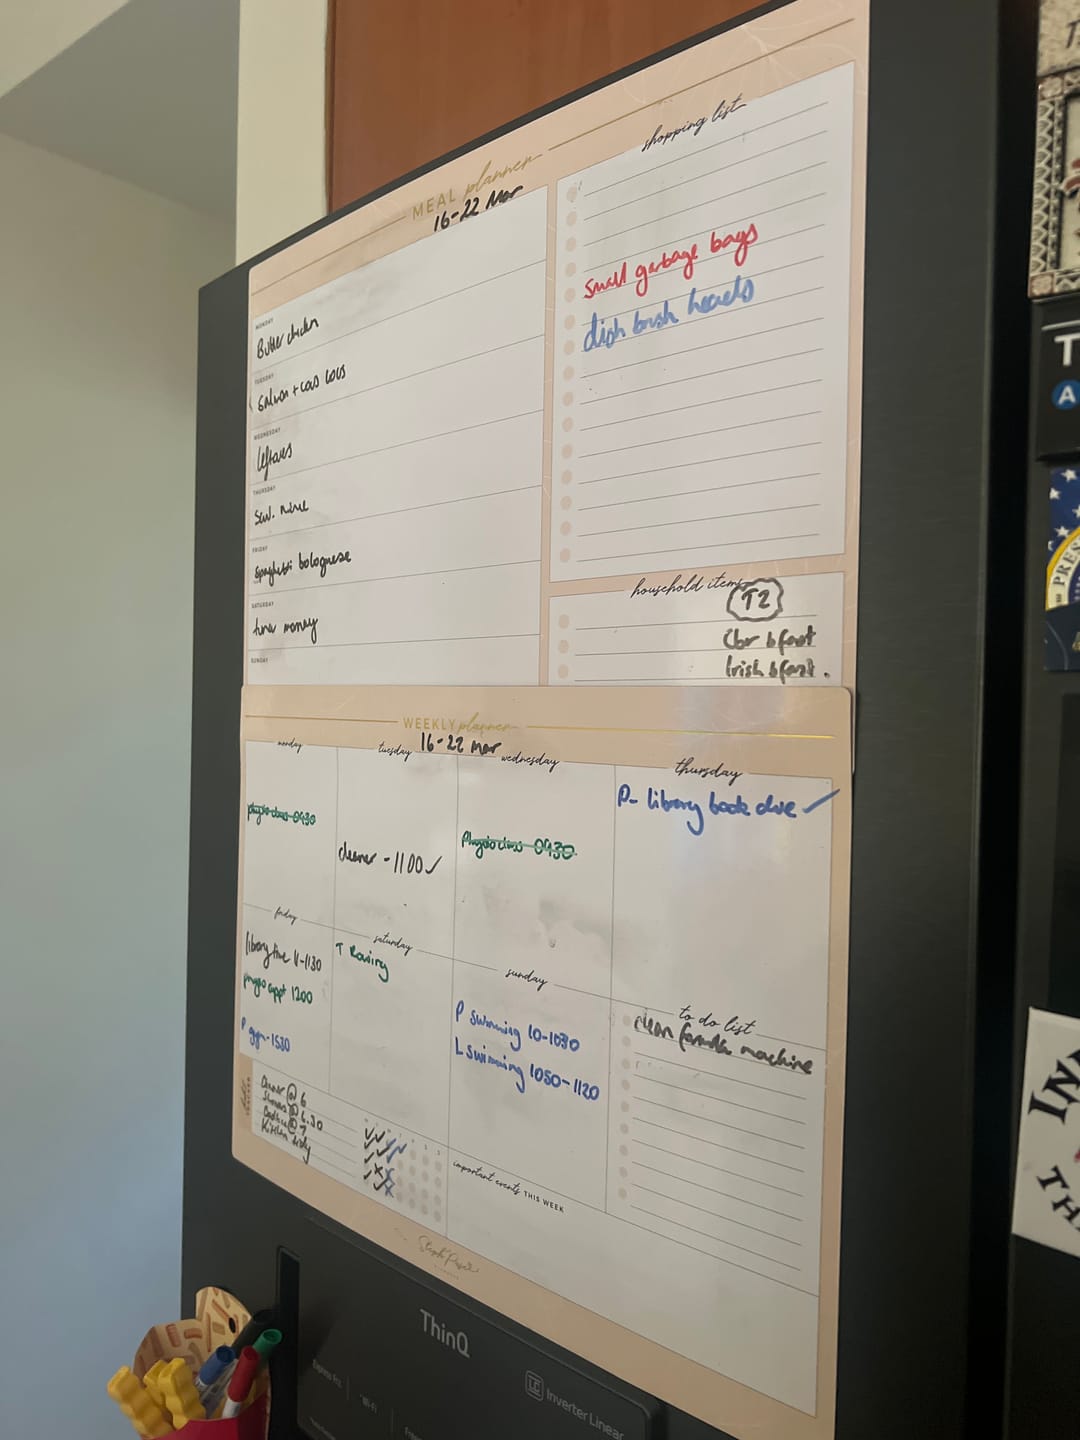 MEAL planner
16-22 Mar
MONDAY
Butter chicken
TUESDAY
Salmon + cous cous
WEDNESDAY
leftovers
THURSDAY
Sau.
FRIDAY
spaghetti bolognese
SATURDAY
tuna mornay
SUNDAY
shopping list
small garbage bags
dish brush heads
household items
T2
Cbr bfast
Irish bfast.
WEEKLY planner
16-22 Mar
monday
physio class 0930
tuesday
cleaner - 1100 ✓
wednesday
Physio class 0930
thursday
P- library book due ✓
friday
library time V-1130
physio appt 1200
P gym-1530
saturday
T Rowing
sunday
P swimming 10-1030
L swimming 1050-1120
to do list
clean formula machine
habit TRACKER
Dinner @ 6
Showers @ 6.30
@ 7
Kitchen tidy
important events THIS WEEK
ThinQ
Express Frz.
Wi-Fi
Inverter Linear